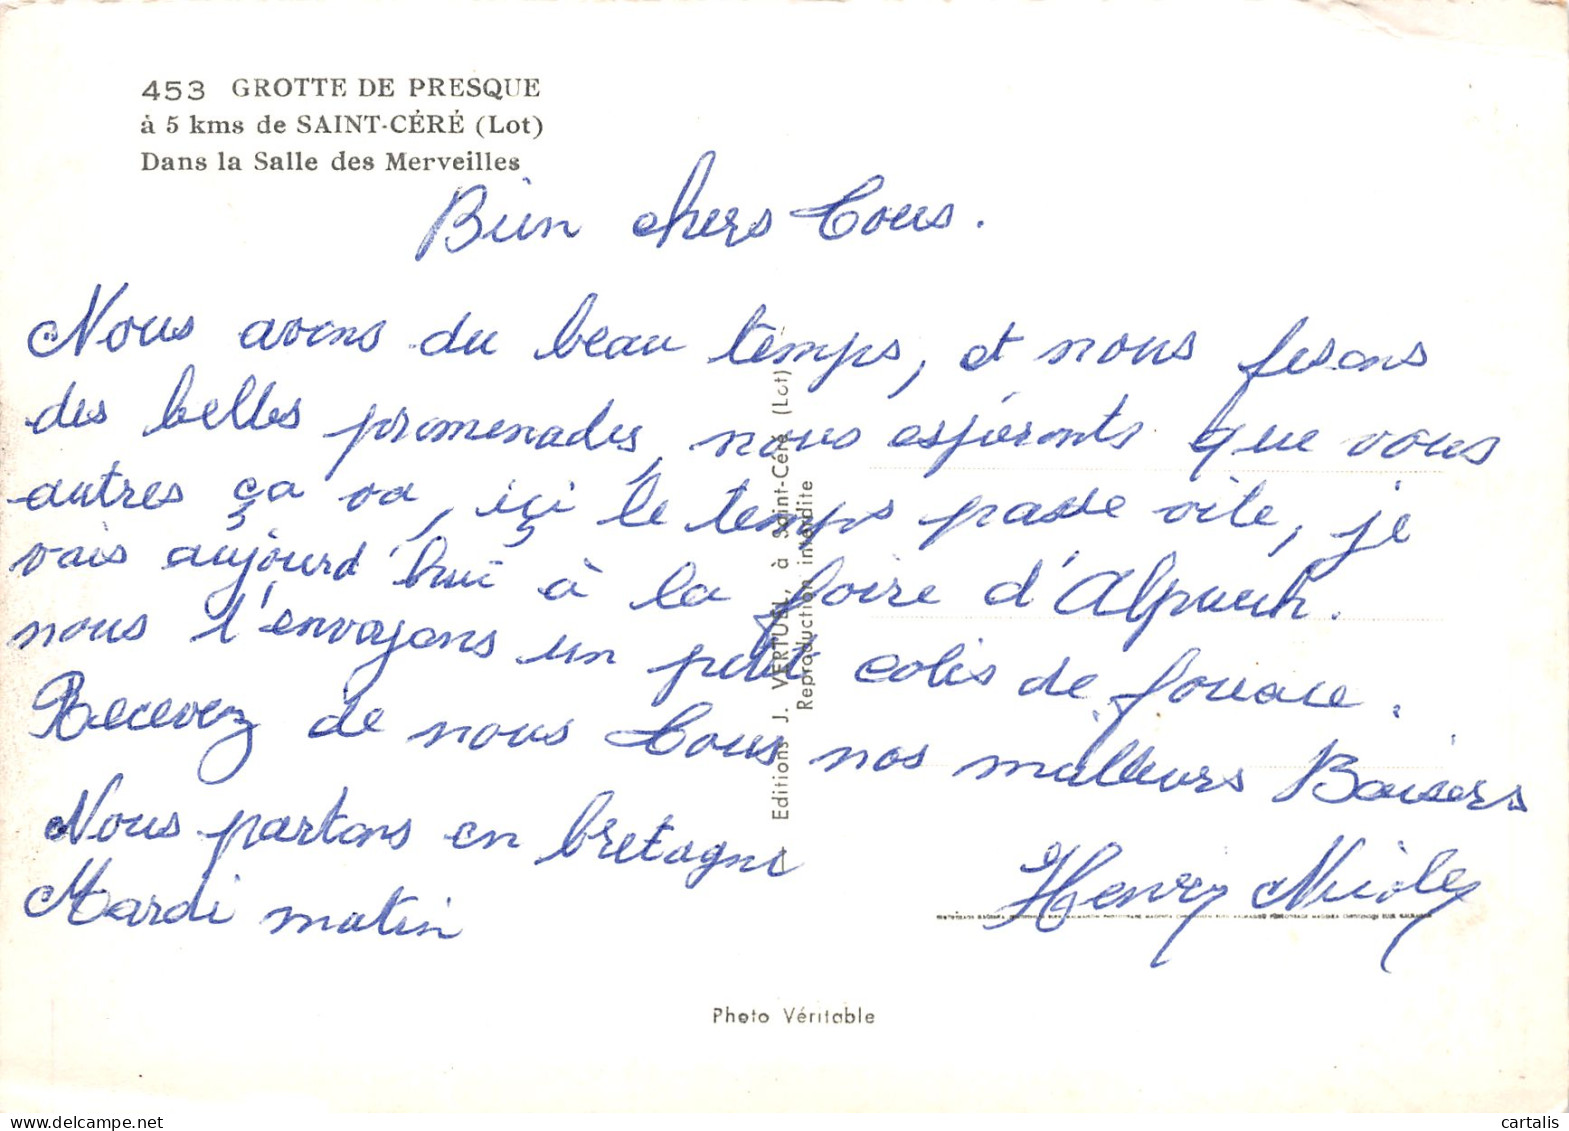 453 GROTTE DE PRESQUE
à 5 kms de SAINT-CÉRÉ (Lot)
Dans la Salle des Merveilles
Bien chers Tous.
Nous avons du beau temps, et nous fesons
des belles promenades, nous espéronts que vous
autres ça va, içi le temps passe vite, je
vais aujourd'hui à la foire d'Alpuech.
nous t'envoyons un petit colis de fouace.
Recevez de nous Tous nos meilleurs Baisers
Nous partons en bretagne
Mardi matin
Henry Nicole
Editions J. VERTUEL, à Saint-Céré (Lot)
Reproduction interdite
Photo Véritable
cartalis